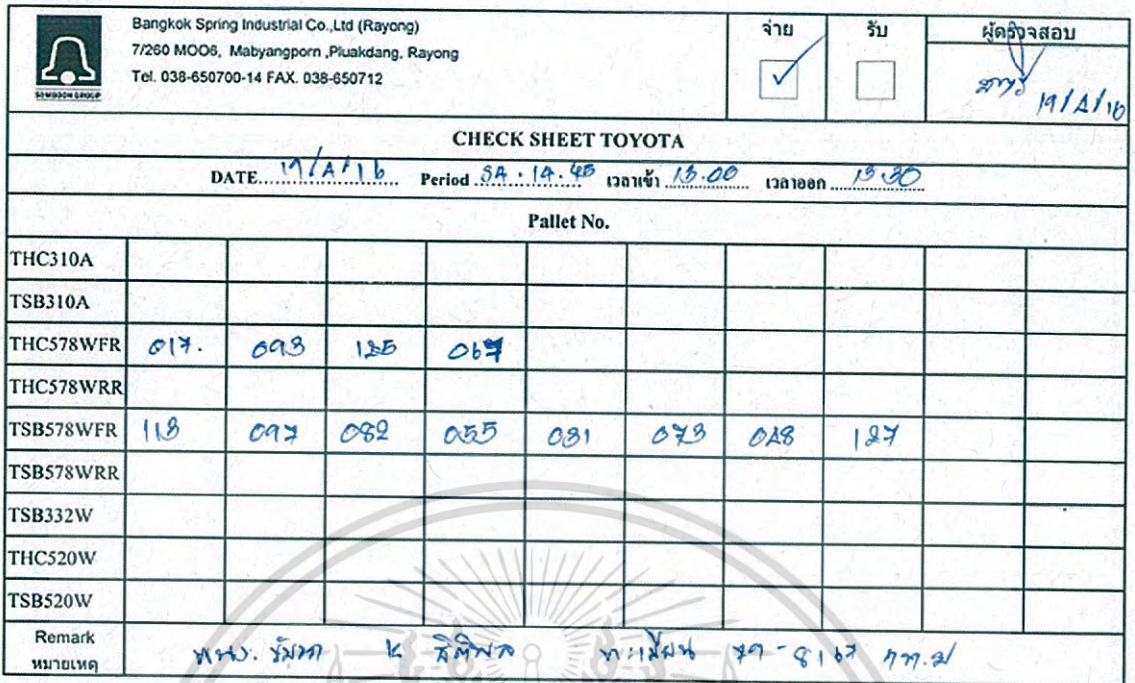 Bangkok Spring Industrial Co.,Ltd (Rayong)
7/260 MOO6, Mabyangporn ,Pluakdang, Rayong
Tel. 038-650700-14 FAX. 038-650712
SOMBOON GROUP
จ่าย
รับ
ผู้ตรวจสอบ
19/4/16
CHECK SHEET TOYOTA
DATE 19/4/16 Period SA . 14 . 45 เวลาเข้า 13.00 เวลาออก 13.30
Pallet No.
THC310A
TSB310A
THC578WFR 017. 093 125 067
THC578WRR
TSB578WFR 113 097 082 055 031 073 048 127
TSB578WRR
TSB332W
THC520W
TSB520W
Remark
หมายเหตุ
ทะเบียน 8167